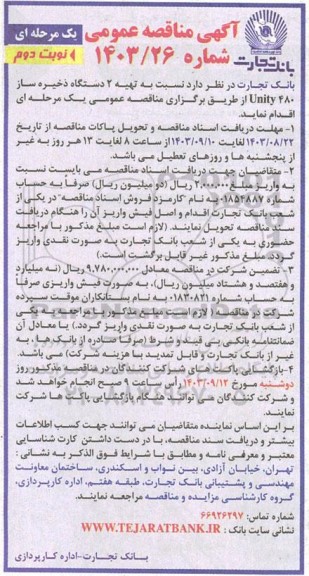 آگهی مناقصه عمومی
یک مرحله ای
شماره ۱۴۰۳/۲۶
نوبت دوم
بانک تجارت
بانک تجارت در نظر دارد نسبت به تهیه ۲ دستگاه ذخیره ساز
Unity ۴۸۰ از طریق برگزاری مناقصه عمومی یک مرحله ای
اقدام نماید.
۱- مهلت دریافت اسناد مناقصه و تحویل پاکات مناقصه از تاریخ
۱۴۰۳/۰۸/۲۲ لغایت ۱۴۰۳/۰۹/۱۰ از ساعت ۸ لغایت ۱۳ هر روز به غیر
از پنجشنبه ها و روزهای تعطیل می باشد.
۲- متقاضیان جهت دریافت اسناد مناقصه می بایست نسبت
به واریز مبلغ ۲.۰۰۰.۰۰۰ ریال (دو میلیون ریال) صرفاً به حساب
شماره ۰۱۸۵۴۸۸۷ به نام "کارمزد فروش اسناد مناقصه" در یکی از
شعب بانک تجارت اقدام و اصل فیش واریز آن را هنگام دریافت
سند مناقصه تحویل نمایند. (لازم است مبلغ مذکور با مراجعه
حضوری به یکی از شعب بانک تجارت به صورت نقدی واریز
گردد. مبلغ مذکور غیر قابل برگشت است.)
۳- تضمین شرکت در مناقصه معادل ۹.۷۸۰.۰۰۰.۰۰۰ ریال (نه میلیارد
و هفتصد و هشتاد میلیون ریال)، به صورت فیش واریزی صرفاً
به حساب شماره ۰۱۸۳۰۸۲۱ به نام بستانکاران موقت سپرده
شرکت در مناقصات (لازم است مبلغ مذکور با مراجعه به یکی
از شعب بانک تجارت به صورت نقدی واریز گردد.) یا معادل آن
ضمانتنامه بانکی بی قید و شرط (صرفاً صادره از بانک ها، به
غیر از بانک تجارت و قابل تمدید با هزینه شرکت) می باشد.
۴- بازگشایی پاکت های شرکت کنندگان در مناقصه مذکور روز
دوشنبه مورخ ۱۴۰۳/۰۹/۱۲ رأس ساعت ۹ صبح انجام خواهد شد
و شرکت کنندگان می توانند هنگام بازگشایی پاکت ها شرکت
نمایند.
بر این اساس نماینده متقاضیان می توانند جهت کسب اطلاعات
بیشتر و دریافت سند مناقصه، با در دست داشتن کارت شناسایی
معتبر و معرفی نامه و مطابق با شرایط فوق الذکر به نشانی :
تهران، خیابان آزادی، بین نواب و اسکندری، ساختمان معاونت
مهندسی و پشتیبانی بانک تجارت، طبقه هفتم، اداره کارپردازی،
گروه کارشناسی مزایده و مناقصه مراجعه نمایند.
شماره تماس: ۶۶۹۲۶۲۹۷
نشانی سایت بانک : WWW.TEJARATBANK.IR
بانک تجارت-اداره کارپردازی